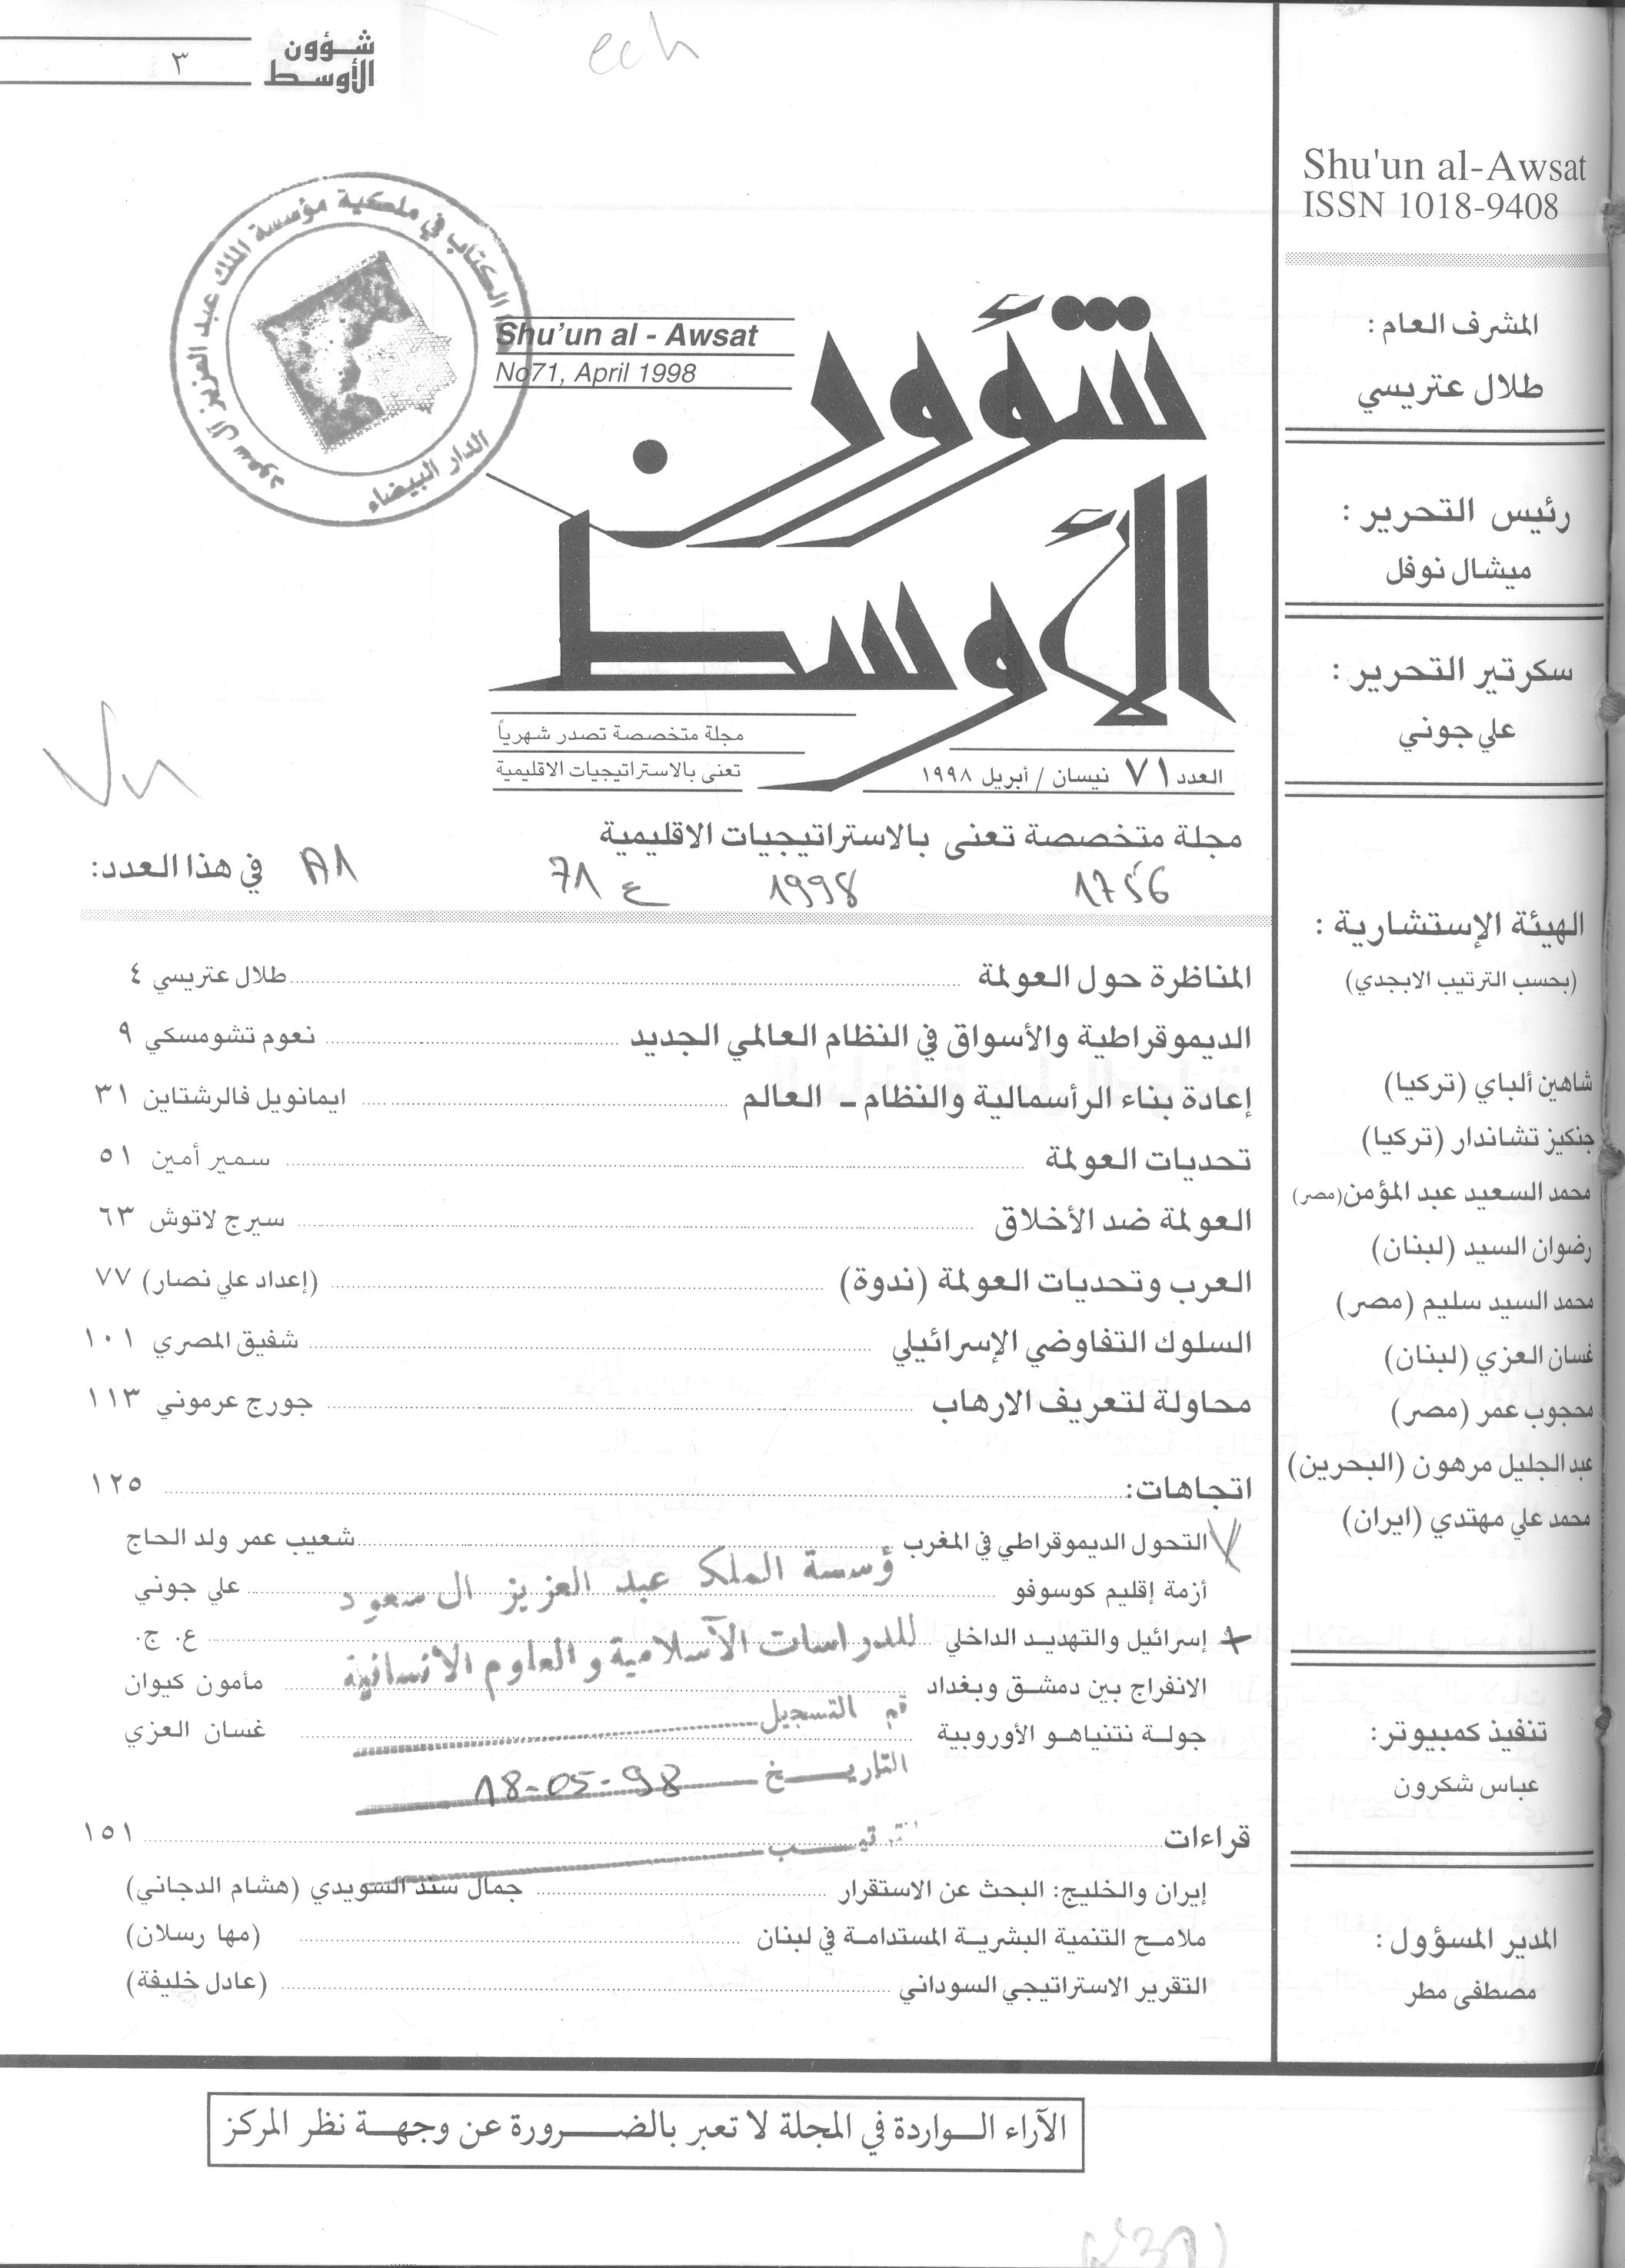 شؤون
الأوسط
٣
ech
Shu'un al-Awsat
ISSN 1018-9408
المشرف العام :
طلال عتريسي
رئيس التحرير :
ميشال نوفل
سكرتير التحرير :
علي جوني
الهيئة الإستشارية :
(بحسب الترتيب الابجدي)
شاهين ألباي (تركيا)
جنكيز تشاندار (تركيا)
محمد السعيد عبد المؤمن (مصر)
رضوان السيد (لبنان)
محمد السيد سليم (مصر)
غسان العزي (لبنان)
محجوب عمر (مصر)
عبد الجليل مرهون (البحرين)
محمد علي مهتدي (ايران)
تنفيذ كمبيوتر:
عباس شكرون
المدير المسؤول :
مصطفى مطر
الكتاب في ملكية مؤسسة الملك عبد العزيز آل سعود
الدار البيضاء
Shu'un al - Awsat
No71, April 1998
شؤون
الأوسط
مجلة متخصصة تصدر شهرياً
تعنى بالاستراتيجيات الاقليمية
العدد ٧١ نيسان / أبريل ١٩٩٨
مجلة متخصصة تعنى بالاستراتيجيات الاقليمية
1756 1998 ع 71 A1
في هذا العدد:
المناظرة حول العولمة ........ طلال عتريسي ٤
الديموقراطية والأسواق في النظام العالمي الجديد ........ نعوم تشومسكي ٩
إعادة بناء الرأسمالية والنظام - العالم ........ ايمانويل فالرشتاين ٣١
تحديات العولمة ........ سمير أمين ٥١
العولمة ضد الأخلاق ........ سيرج لاتوش ٦٣
العرب وتحديات العولمة (ندوة) ........ (إعداد علي نصار) ٧٧
السلوك التفاوضي الإسرائيلي ........ شفيق المصري ١٠١
محاولة لتعريف الارهاب ........ جورج عرموني ١١٣
اتجاهات: ........ ١٢٥
التحول الديموقراطي في المغرب ........ شعيب عمر ولد الحاج
أزمة إقليم كوسوفو ........ علي جوني
إسرائيل والتهديد الداخلي ........ ع. ج.
الانفراج بين دمشق وبغداد ........ مأمون كيوان
جولة نتنياهو الأوروبية ........ غسان العزي
ؤسسة الملك عبد العزيز ال سعود
للدراسات الآسلامية و العلوم الأنسانية
قم التسجيل
التاريخ 18-05-98
قراءات ........ ١٥١
إيران والخليج: البحث عن الاستقرار ........ جمال سند السويدي (هشام الدجاني)
ملامح التنمية البشرية المستدامة في لبنان ........ (مها رسلان)
التقرير الاستراتيجي السوداني ........ (عادل خليفة)
الآراء الواردة في المجلة لا تعبر بالضرورة عن وجهة نظر المركز